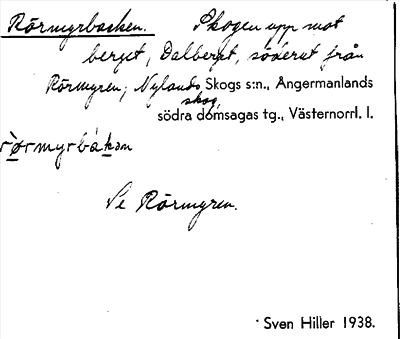 Rörmyrbacken. Skogen upp mot
berget, Dalberget, söderut från
Rörmyren; Nylands skog, Skogs s:n., Ångermanlands
södra domsagas tg., Västernorrl. l.
rørmyrbákan
Se Rörmyren.
Sven Hiller 1938.